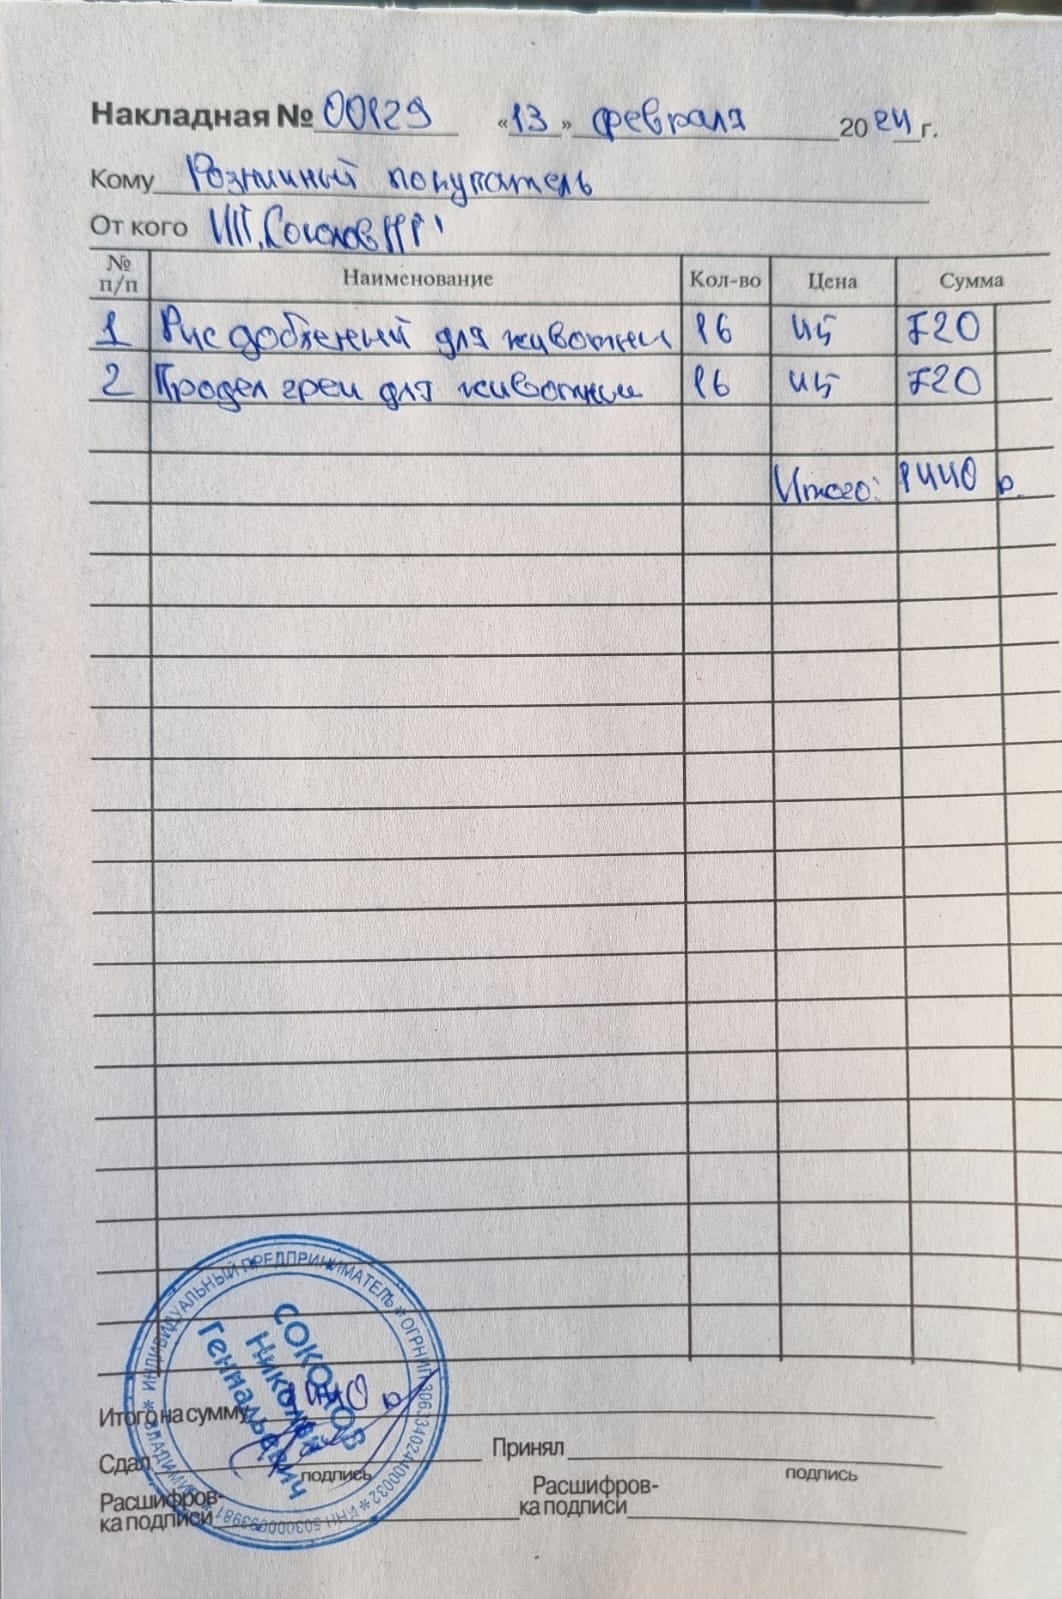 Накладная № 00129 «13» февраля 2024 г.
Кому Розничный покупатель
От кого ИП Соколов Н.Г.
№ п/п Наименование Кол-во Цена Сумма
1 Рис дробленный для животных 16 45 720
2 Продел греч для животных 16 45 720
Итого: 1440 р.
ИНДИВИДУАЛЬНЫЙ ПРЕДПРИНИМАТЕЛЬ * ОГРНИП 306334024400032 * ИНН * ВЛАДИМИР *
СОКОЛОВ
Николай
Геннадьевич
Итого на сумму 1440 р
Сдал Принял
подпись подпись
Расшифров- Расшифров-
ка подписи ка подписи